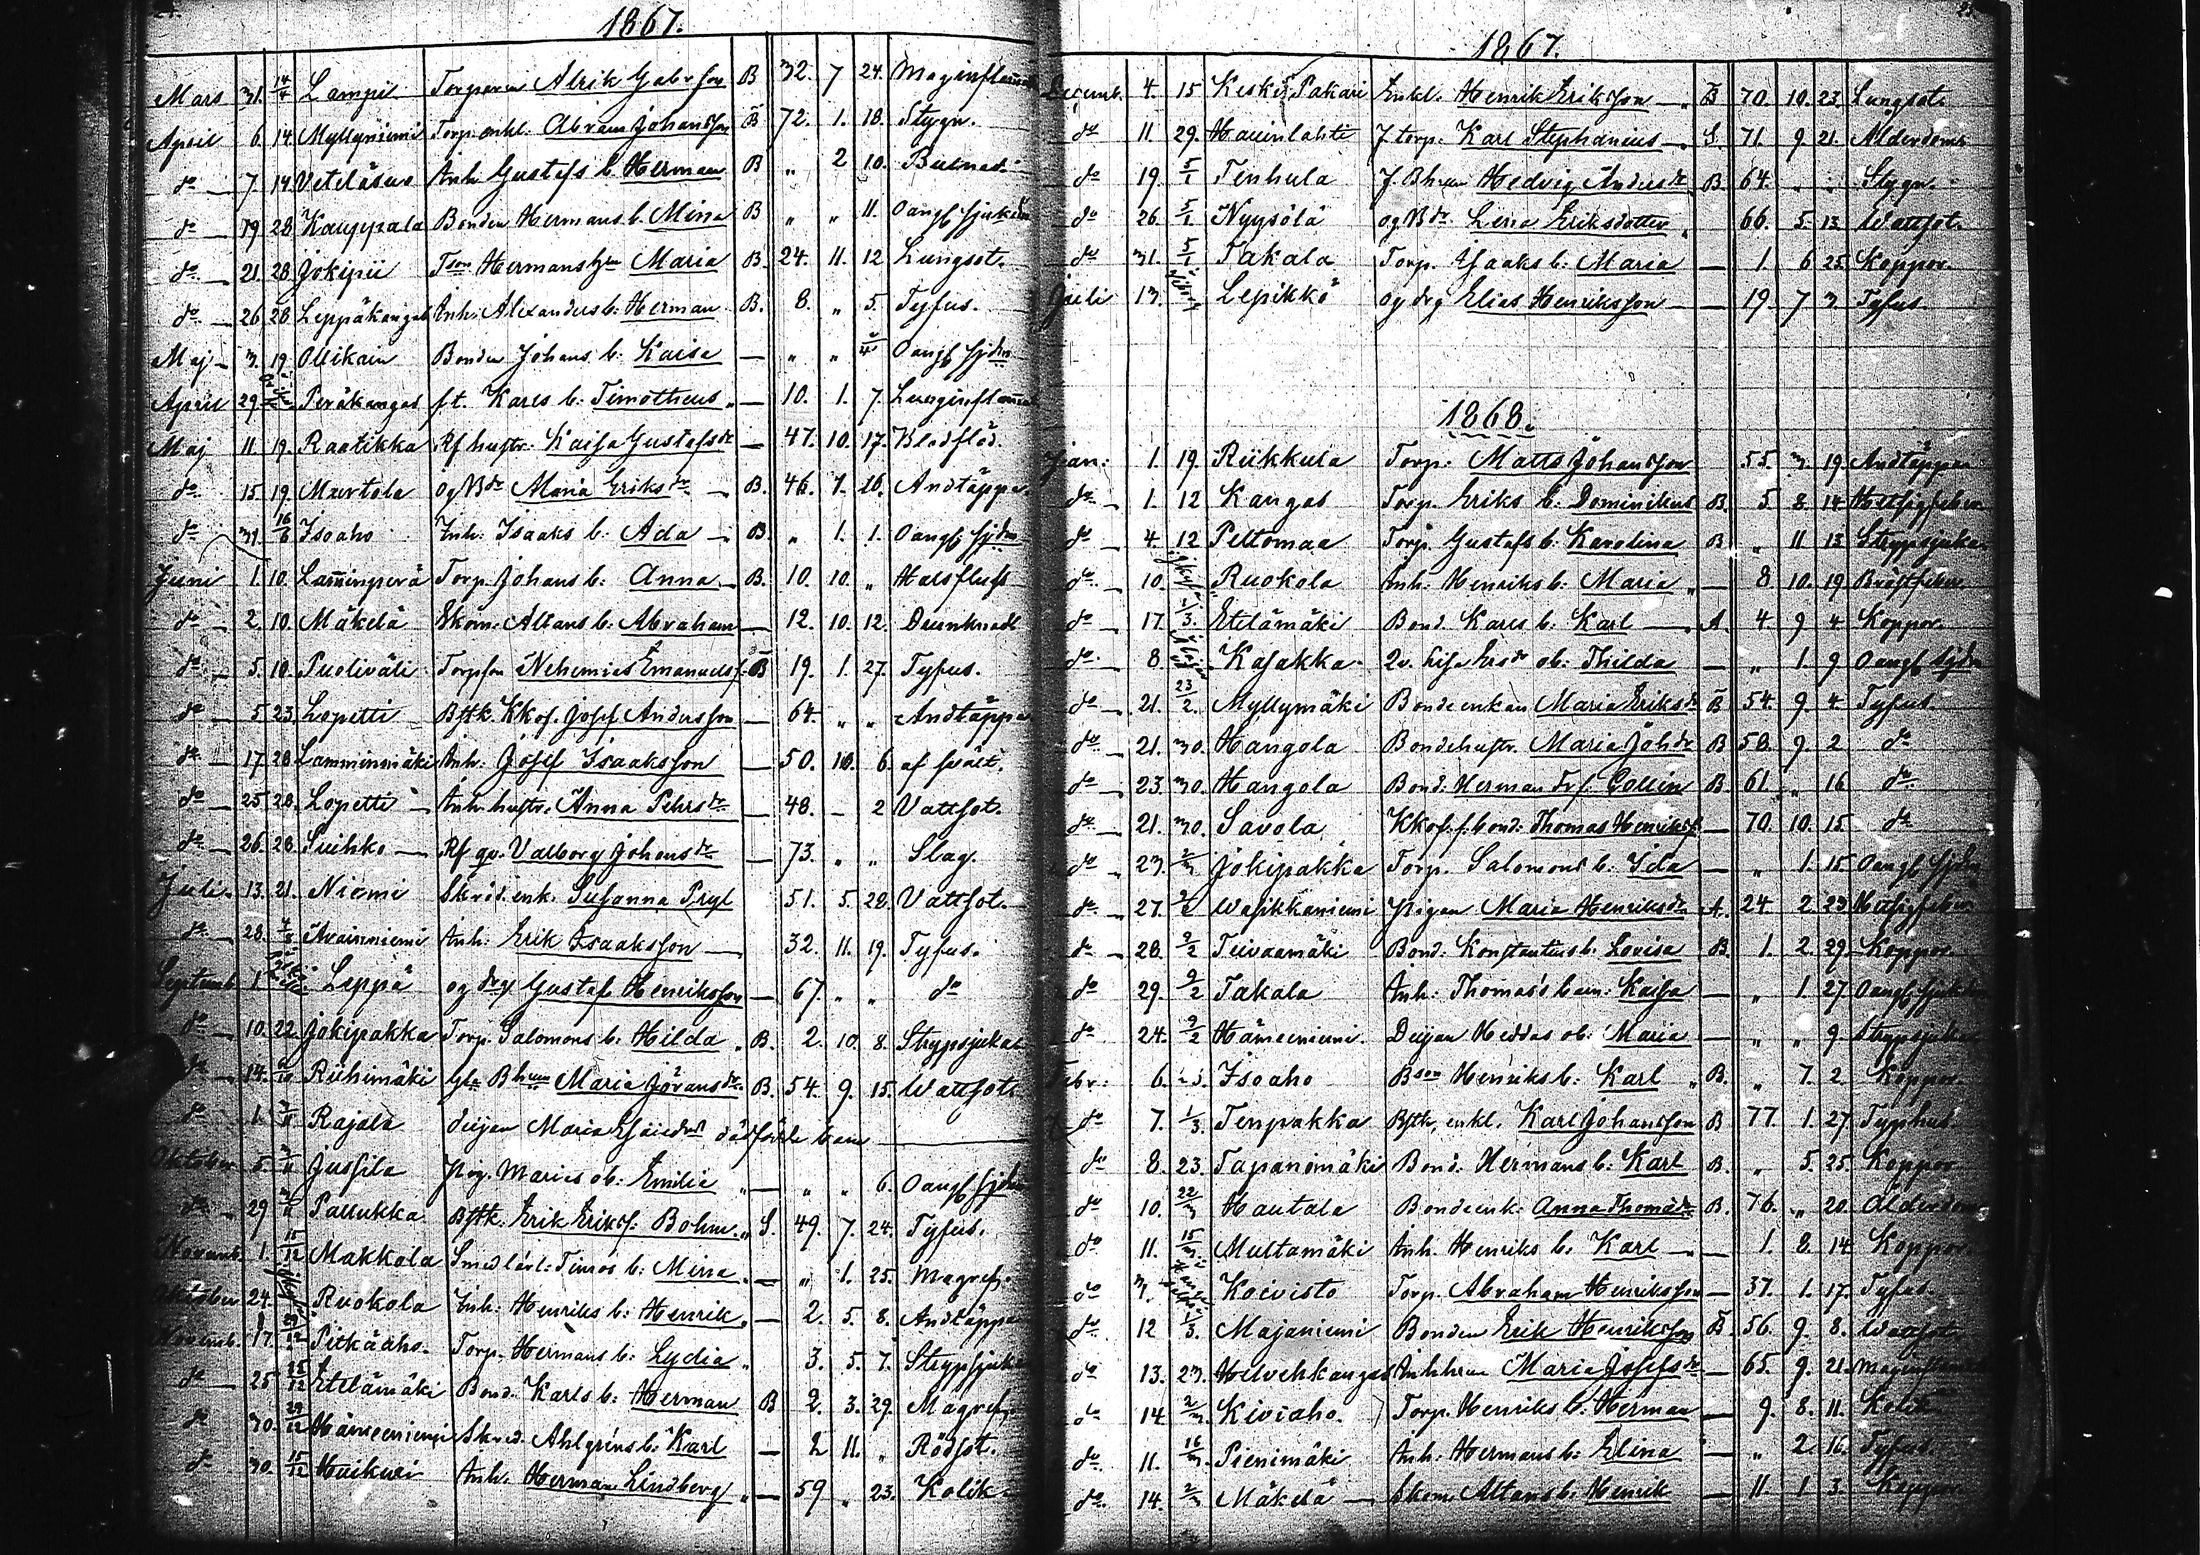 1867.
Mars 31. 14/4 Lampi Torparen Alrik Gabr.son B 32. 7 24. Maginflamm
April 6. 14. Myllyniemi Torp.enkl. Abram Johansson B 72. 1. 18. Stygn.
do 7. 14 Veteläsuo Inh. Gustafs b. Herman B „ 2 10. Bulnad.
do 19 28 Kauppala Bonden Hermans b. Mina B „ „ 11. Oangf sjukdm
do 21. 28 Jokipii Tson Hermans hru Maria B. 24. 11. 12 Lungsot.
do 26 28 Leppäkangas Inh. Alexanders b: Herman B. 8. „ 5. Tyfus.
Maj 3. 19. Ollikain Bonden Johans b. Kaisa — „ „ Oangf sjdm
April 29 Peräkangas ft. Karls b. Timotheus — 10. 1. 7. Lunginflamm
Maj 11. 19. Raatikka Rf hustr. Kaisa Gustafsdr — 47. 10. 17. Blodflöd.
do 15. 19. Murtola og Bdr Maria Eriksdr B. 46. 7. 26. Andtäppa.
do 31. 16/6 Isoaho Inh. Isaaks b. Ada B. „ 1. 1. Oangf sjdm
Juni 1. 10. Lamminperä Torp. Johans b: Anna B. 10. 10. „ Halsfluss
do 2. 10. Mäkelä Skom. Altans b. Abraham — 12. 10. 12. Drunknadt
do 5. 10. Puoliväli Torpson Nehemias Emanuelss. B 19. 1. 27. Tyfus.
do 5. 23. Lopetti Bstk. Kkof. Josef Andersson — 64. „ „ Andtäppa
do 17. 28 Lamminmäki Inh: Josef Isaaksson — 50. 10. 6. af svält.
do 25 28. Lopetti Inh. hustr. Anna Pehrsdr — 48. — 2 Vattsot.
do 26. 28 Suihko Rf gu. Valborg Johansdr — 73. „ „ Slag.
Juli. 13. 21. Niemi Skräd. enk. Susanna Pryl 51. 5. 28. Vattsot.
do 28. 4/8 Avainniemi Inh: Erik Isaaksson 32. 11. 19. Tyfus.
Septemb. 1. Leppä og drg Gustaf Henriksson — 67. „ „ do
do 10. 22. Jokipakka Torp. Salomons b: Hilda B. 2. 10. 8. Strypsjuka
do 14. Riihimäki Gla Bhrun Maria Göransdr B. 54. 9. 15. Wattsot.
do 1. Rajala deijan Maria dödfödde barn
Oktober 5. Jussila Pig. Marias ob. Emilia „ — „ „ 6. Oangf sjdm
do 29 Paulukka Bstk. Erik Eriks. Bohm. S. 49. 7. 24. Tyfus.
Novemb. 1. 15/12 Makkola Smedlärl. b: Mina — „ 1. 25. Magref.
Oktober 24. Ruokola Inh: Henriks b: Henrik — 2. 5. 8. Andtäppa
Novemb. 17. 29/12 Pitkäaho. Torp. Hermans b: Lydia „ 3. 5. 7. Strypsjuka
do 25 15/12 Etelämäki Bond. Karls b: Herman B 2. 3. 29. Magref.
do 30. 29/12 Hämeeniemi Skred. Ahlgréns b: Karl — 2 11. „ Rödsot.
do 30. 15/12 Huikuri Inh. Herman Lindberg „ — 59 „ 23. Kolik
1867.
Decemb. 4. 15 Keski Pakari Enkl. Henrik Eriksson B 70. 10. 23. Lungsot.
do 11. 29. Hauinlahti F torp. Karl Stephanius S. 71. 9. 21. Ålderdoms
do 19. 5/1 Tenhula F. Bhrun Hedvig Andersdr B 64. „ „ Stygn.
do 26. 5/1 Nyysölä og Bdr Lena Eriksdotter 66. 5. 13. Wattsot.
do 31. 5/1 Takala Torp. Isaaks b: Maria — 1. 6 25. Koppor.
Juli 13. Lepikkö og drg Elias Henriksson — 19. 7 3. Tyfus.
1868.
Jan: 1. 19. Riikkula Torp. Matts Johansson 55. 3. 19. Andtäppa
do 1. 12 Kangas Torp. Eriks b: Dominikus B. 5 8. 14. Hetsigfeber
do 4. 12 Peltomaa Torp. Gustafs b. Karolina B „ 11 13 Strypsjuka
do 10. Ruokola Inh: Henriks b: Maria — 8 10. 19. Bröstfeber
do 17. 1/3. Etelämäki Bond. Karls b: Karl A. 4. 9 4 Koppor.
do 8. Kasakka Qv. Lisa Ersdr ob: Thilda — „ 1. 9 Oangf sjdm
do 21. 23/2. Myllymäki Bondeenkan Maria Eriksdr B 54. 9. 4 Tyfus.
do 21. 30. Hangola Bondehustr. Maria Johdr B 58. 9. 2 do
do 23. 30. Hangola Bond. Herman Collin B. 61. „ 16 do
do 21. 30. Savola Kkof. f. bond. Thomas Henrikss. — 70. 10. 15 do
do 23. Jokipakka Torp. Salomons b: Ida — „ 1. 15. Oangf sjdm
do 27. Wasikkaniemi Pigan Maria Henriksdr A. 24. 2. 23 Hetsigfeber
do 28. 9/2 Teivaamäki Bond. Konstantins b. Lovisa B. 1. 2. 29. Koppor.
do 29. 9/2 Takala Inh: Thomas's barn: Kaisa — „ 1. 27 Oangf sjukdm
do 24. 9/2 Hämeeniemi. Deijan Heddas ob: Maria — „ „ 9. Strypsjuka
Febr: 6. 23. Isoaho Bson Henriks b: Karl B. „ 7. 2. Koppor
do 7. 1/3. Tenpakka Bstk. enkl. Karl Johansson B 77. 1. 27. Typhus.
do 8. 23. Tapanimäki Bond. Hermans b: Karl B. „ 5. 25. Koppor
do 10. 22/3 Hautala Bondeenk. Anna Thomasdr B. 76. „ 20. Ålderdom
do 11. 15/3. Multamäki Inh. Henriks b. Karl — 1. 8. 14 Koppor
do 3. Koivisto Torp. Abraham Henriksson — 37. 1. 17. Tyfus
do 12 1/3. Majaniemi Bonden Erik Henriksson B. 56. 9. 8. Wattsot.
do 13. 23. Helvehkangas Inhhrun Maria Josefsdr — 65. 9. 21. Maginflamma
do 14. 2/3. Kiviaho. Torp. Henriks b. Herman — 9. 8. 11. Kolik
do 11. 16/3. Pienimäki Inh: Hermans b: Elina — „ 2. 16. Tyfus
do. 14. 2/3 Mäkelä Skom. Altans b. Henrik — 11. 1. 3. Koppor